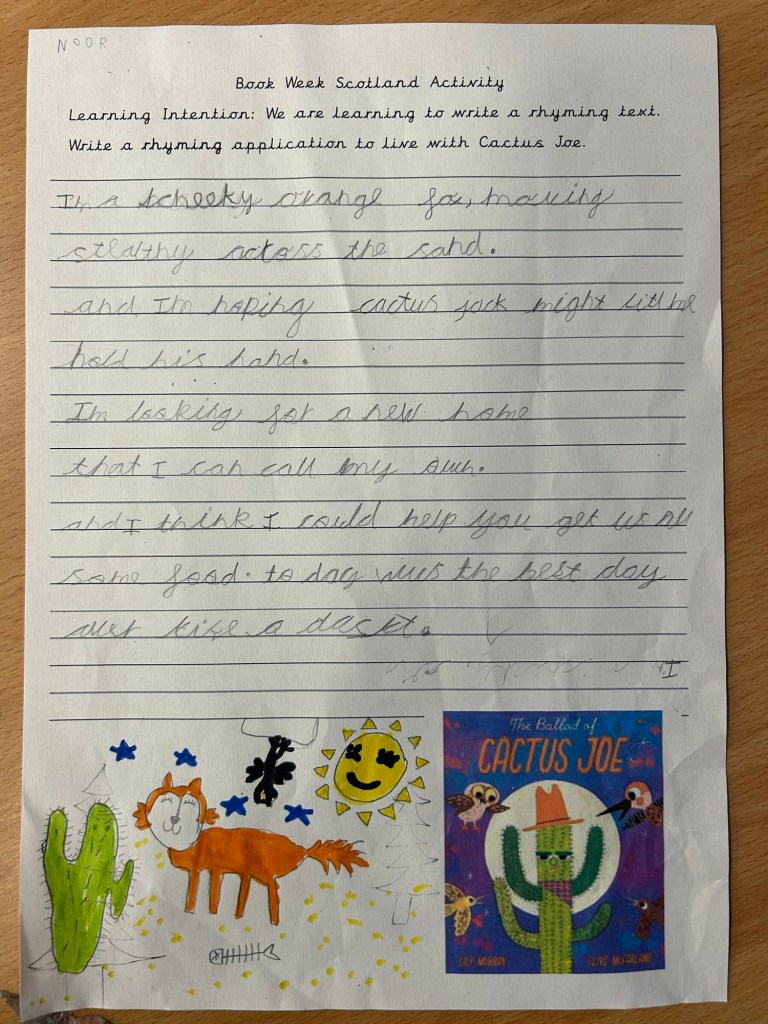 NOOR
Book Week Scotland Activity
Learning Intention: We are learning to write a rhyming text.
Write a rhyming application to live with Cactus Joe.
I'm a cheeky orange fox, moving
stealthy across the sand.
and I'm hoping cactus jack might let me
hold his hand.
I'm looking for a new home
that I can call my own.
and I think I could help you get us all
some food. to day was the best day
ever like a
The Ballad of
CACTUS JOE
LILY MURRAY CLIVE McFARLAND